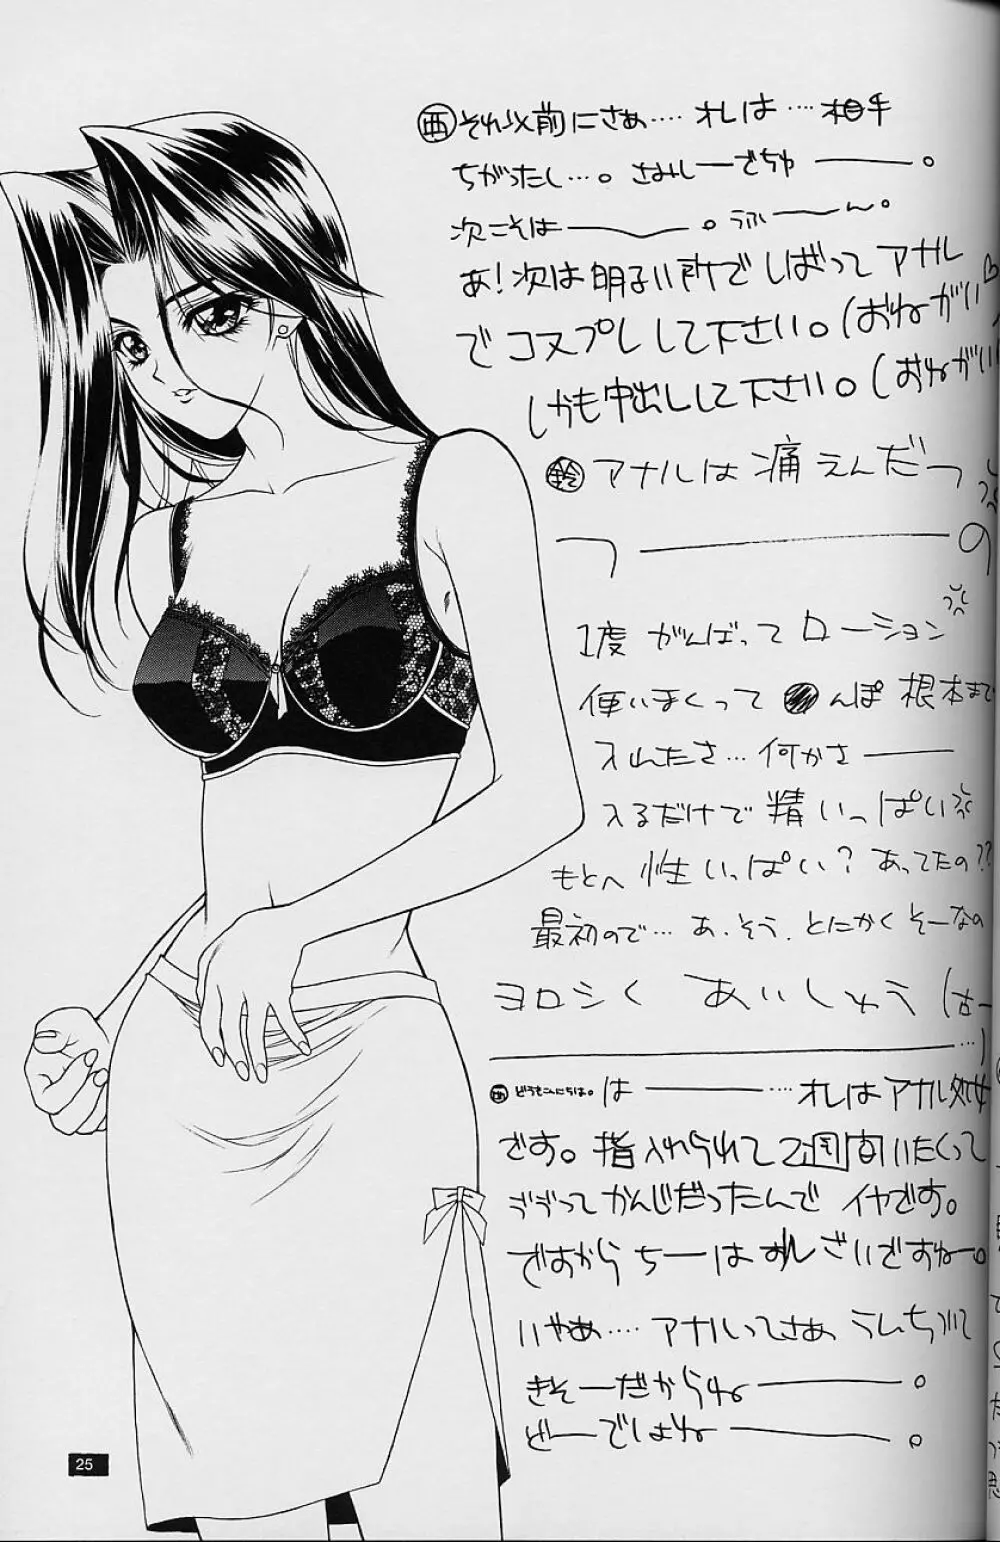 西 それ以前にさぁ‥‥オレは‥‥相手
ちがったし…。さみしーでちゅ――。
次こそは――。うふ――ん。
あ!次は明るい所でしばってアナル
でコスプレして下さい。(おねがい♡
しかも中出しして下さい。(おねがい
鈴 アナルは痛えんだっ
つ――の
1度がんばってローション
使いまくって●んぽ根本まで
入れたさ…何かさ――
入るだけで精いっぱい
もとへ性いっぱい?あってたの??
最初ので…あ、そう、とにかくそーなの
ヨロシく あいしゅう (はー
…)
西 どうもこんにちは。は――‥‥オレはアナル処女
です。指入れられて2週間いたくって
ヴヴってかんじだったんでイヤです。
ですからちーはすしざいですねー。
いやぁ‥‥アナルってさぁうんちついて
きそーだからね――。
どーでしょね――。
25